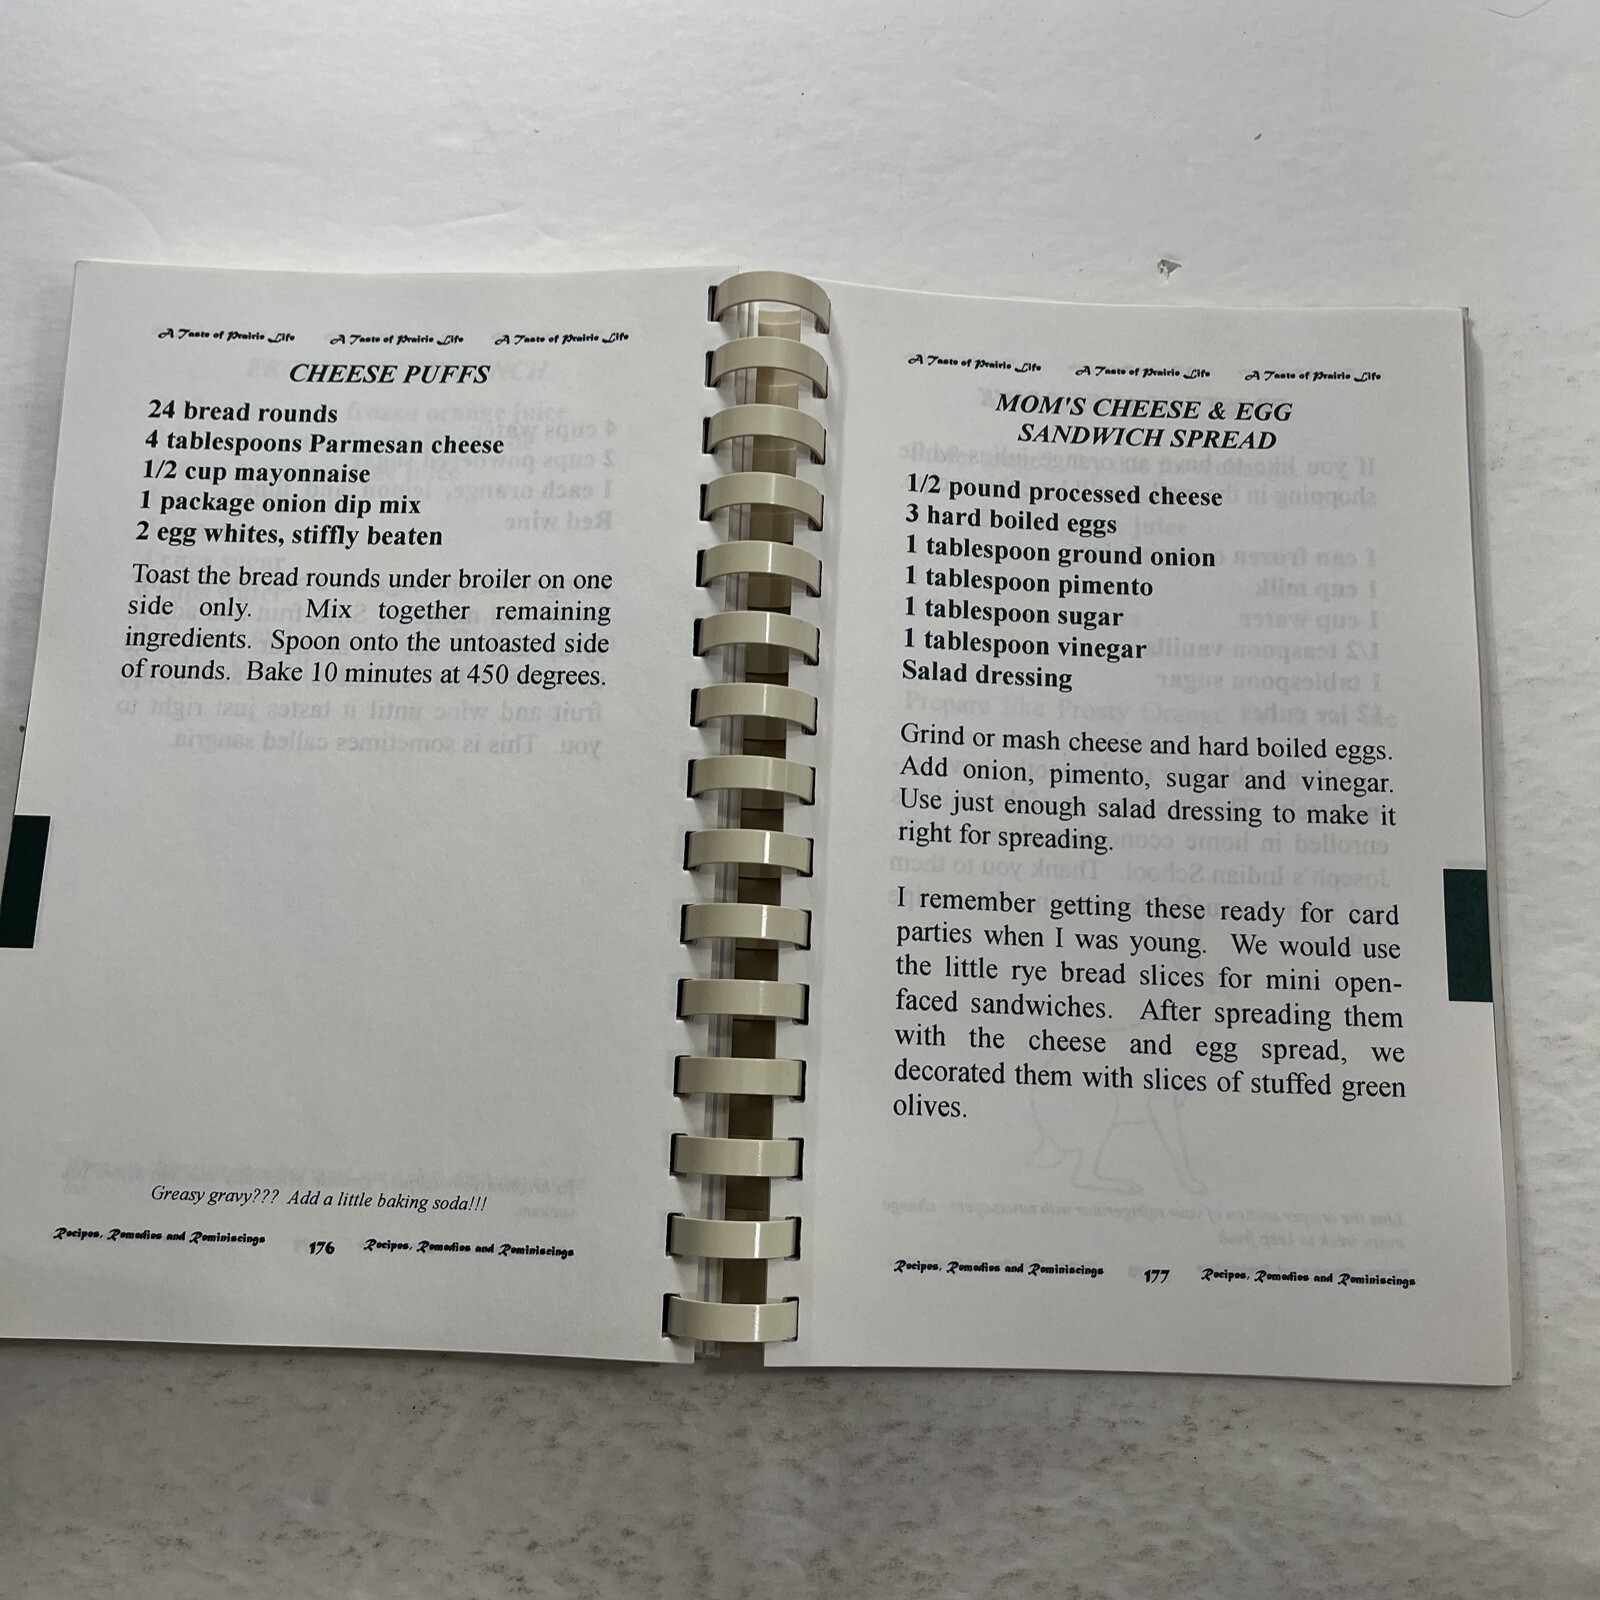 A Taste of Prairie Life A Taste of Prairie Life A Taste of Prairie Life
CHEESE PUFFS
24 bread rounds
4 tablespoons Parmesan cheese
1/2 cup mayonnaise
1 package onion dip mix
2 egg whites, stiffly beaten
Toast the bread rounds under broiler on one
side only. Mix together remaining
ingredients. Spoon onto the untoasted side
of rounds. Bake 10 minutes at 450 degrees.
Greasy gravy??? Add a little baking soda!!!
Recipes, Remedies and Reminiscings 176 Recipes, Remedies and Reminiscings
A Taste of Prairie Life A Taste of Prairie Life A Taste of Prairie Life
MOM'S CHEESE & EGG
SANDWICH SPREAD
1/2 pound processed cheese
3 hard boiled eggs
1 tablespoon ground onion
1 tablespoon pimento
1 tablespoon sugar
1 tablespoon vinegar
Salad dressing
Grind or mash cheese and hard boiled eggs.
Add onion, pimento, sugar and vinegar.
Use just enough salad dressing to make it
right for spreading.
I remember getting these ready for card
parties when I was young. We would use
the little rye bread slices for mini open-
faced sandwiches. After spreading them
with the cheese and egg spread, we
decorated them with slices of stuffed green
olives.
Recipes, Remedies and Reminiscings 177 Recipes, Remedies and Reminiscings